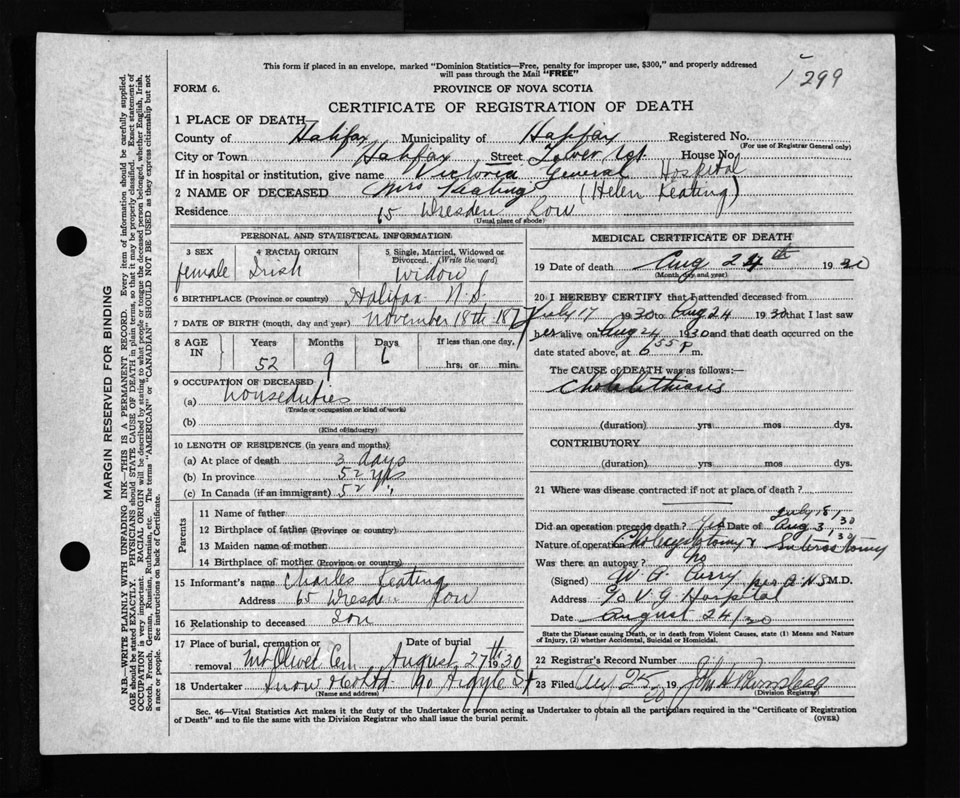 This form if placed in an envelope, marked "Dominion Statistics—Free, penalty for improper use, $300," and properly addressed
will pass through the Mail "FREE"
1 299
FORM 6.
PROVINCE OF NOVA SCOTIA
CERTIFICATE OF REGISTRATION OF DEATH
1 PLACE OF DEATH
County of Halifax Municipality of Halifax Registered No.
(For use of Registrar General only)
City or Town Halifax Street Tower Rd. House No.
If in hospital or institution, give name Victoria General Hospital
2 NAME OF DECEASED Mrs Keating (Helen Keating)
Residence 65 Dresden Row
(Usual place of abode)
PERSONAL AND STATISTICAL INFORMATION
3 SEX female
4 RACIAL ORIGIN Irish
5 Single, Married, Widowed or Divorced. (Write the word) Widow
6 BIRTHPLACE (Province or country) Halifax N.S.
7 DATE OF BIRTH (month, day and year) November 18th 1877
8 AGE IN Years 52 Months 9 Days 6 If less than one day, hrs. or min.
9 OCCUPATION OF DECEASED
(a) houseduties
(Trade or occupation or kind of work)
(b)
(Kind of industry)
10 LENGTH OF RESIDENCE (in years and months)
(a) At place of death 3 days
(b) In province 52 yrs
(c) In Canada (if an immigrant) 52 "
Parents
11 Name of father
12 Birthplace of father (Province or country)
13 Maiden name of mother
14 Birthplace of mother (Province or country)
15 Informant's name Charles Keating
Address 65 Dresden Row
16 Relationship to deceased Son
17 Place of burial, cremation or removal Mt Olivet Cem
Date of burial August 27th 1930
18 Undertaker Snow 90 Argyle St
(Name and address)
MEDICAL CERTIFICATE OF DEATH
19 Date of death Aug 24th 1930
(Month, day and year)
20 I HEREBY CERTIFY that I attended deceased from
July 17 1930 to Aug 24 1930 that I last saw
her alive on Aug 24 1930 and that death occurred on the
date stated above, at 6 55 P m.
The CAUSE of DEATH was as follows:—
Cholelithiasis
(duration) yrs mos dys.
CONTRIBUTORY
(duration) yrs mos dys.
21 Where was disease contracted if not at place of death?
Did an operation precede death? Yes Date of July 18/30 Aug 3/30
Nature of operation Cholecystotomy & Enterostomy
Was there an autopsy? No
(Signed) W. A. Curry M.D.
Address c/o V G Hospital
Date August 24/30
State the Disease causing Death, or in death from Violent Causes, state (1) Means and Nature of Injury, (2) whether Accidental, Suicidal or Homicidal.
22 Registrar's Record Number
23 Filed Aug 25 1930 John A
(Division Registrar)
Sec. 46—Vital Statistics Act makes it the duty of the Undertaker or person acting as Undertaker to obtain all the particulars required in the "Certificate of Registration
of Death" and to file the same with the Division Registrar who shall issue the burial permit. (OVER)
MARGIN RESERVED FOR BINDING
N.B—WRITE PLAINLY WITH UNFADING INK—THIS IS A PERMANENT RECORD. Every item of information should be carefully supplied.
AGE should be stated EXACTLY. PHYSICIANS should STATE CAUSE OF DEATH in plain terms, so that it may be properly classified. Exact statement of
OCCUPATION is very important. RACIAL ORIGIN will be described by stating to what people or tongue the deceased person belonged, whether English, Irish,
Scotch, French, German, Russian, Ruthenian, etc. The terms "AMERICAN" or "CANADIAN" SHOULD NOT BE USED as they express citizenship but not
a race or people. See instructions on back of Certificate.